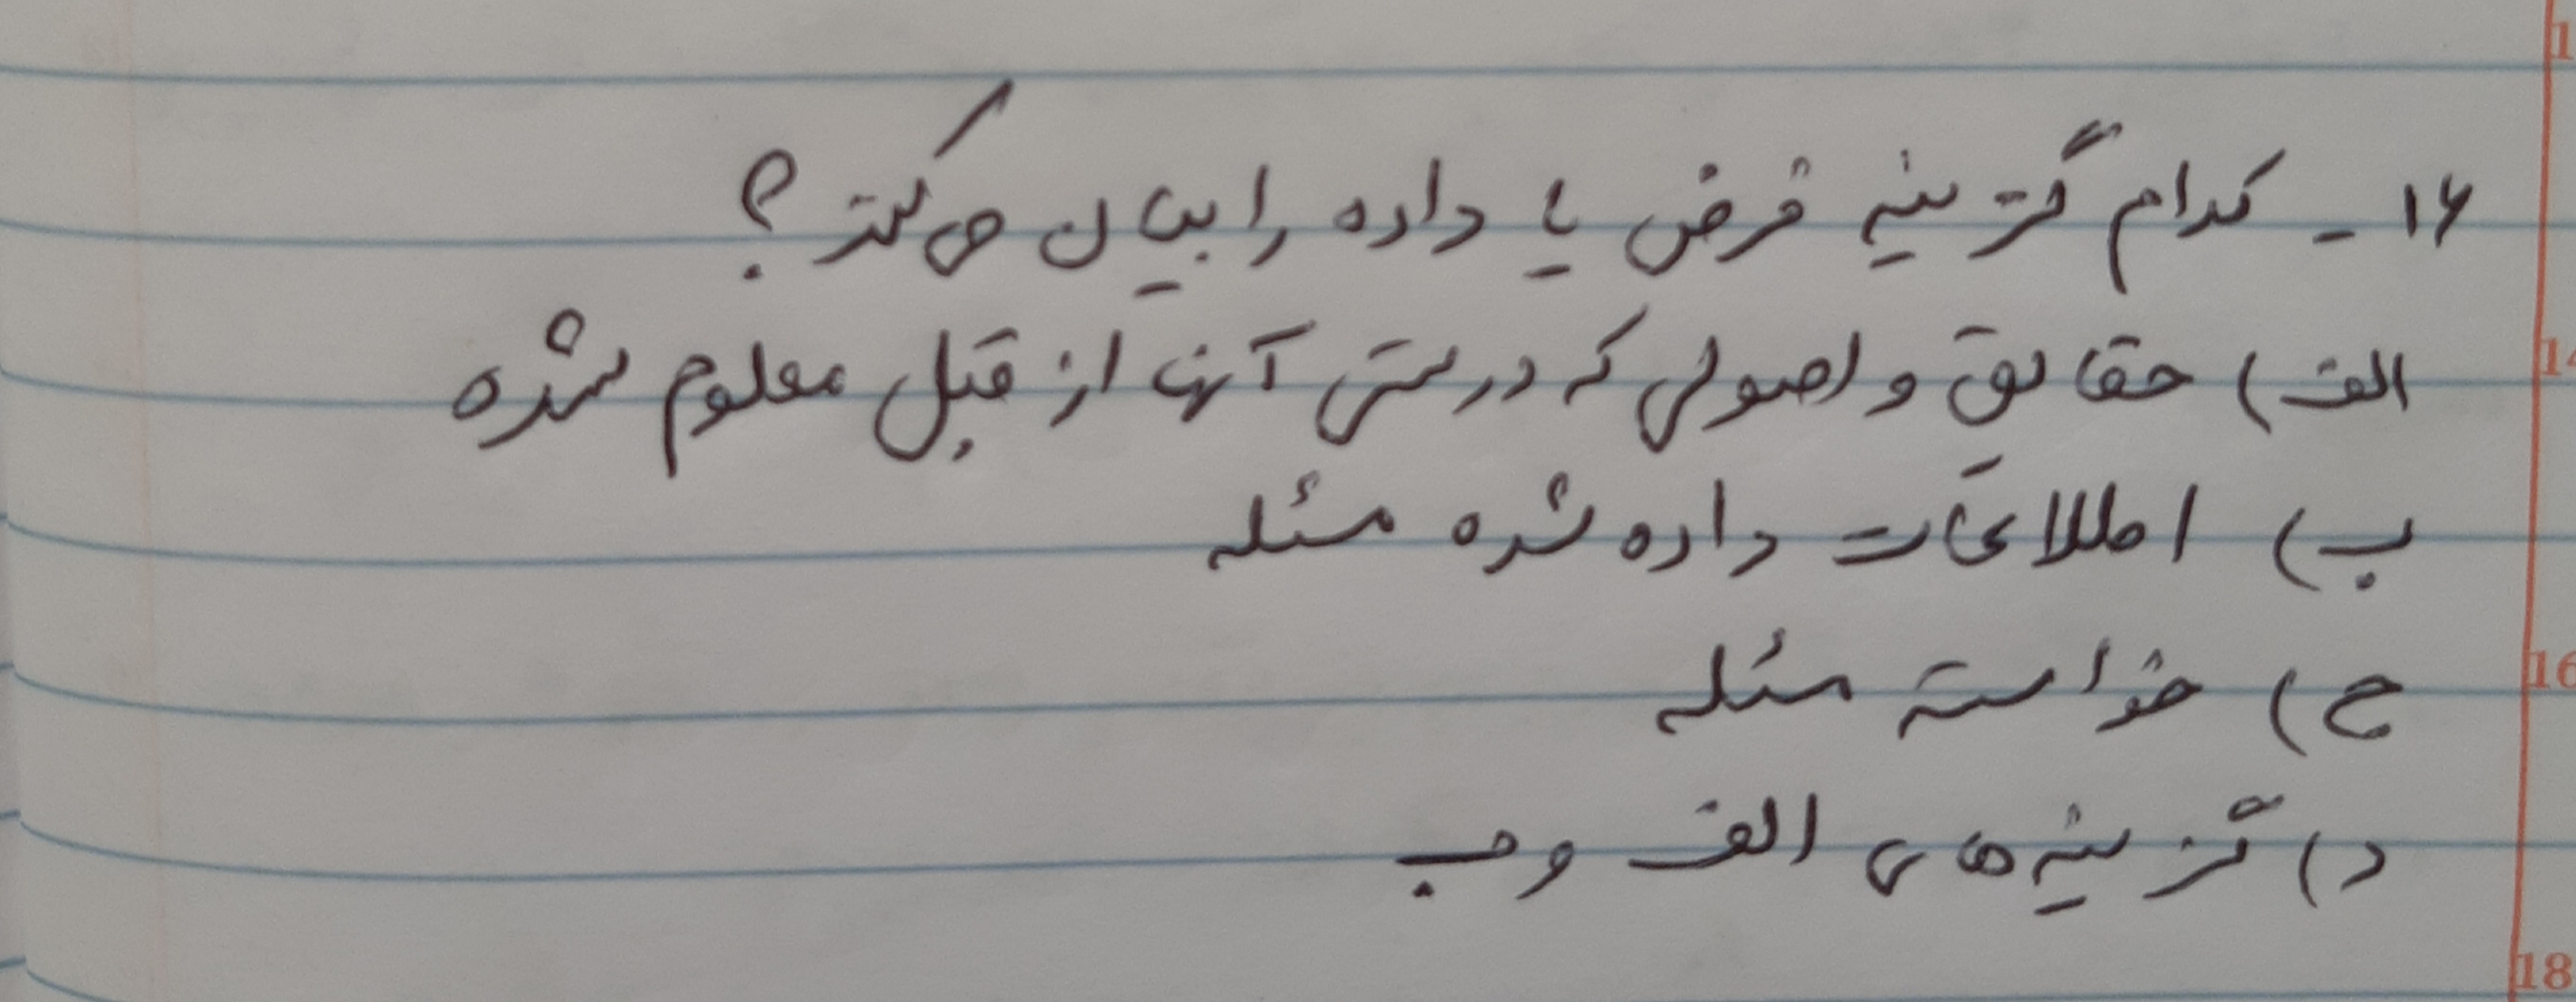 ۱۶ - کدام گزینه فرض یا داده را بیان می‌کند؟
الف) حقایق و اصولی که درستی آنها از قبل معلوم شده
ب) اطلاعات داده شده مسئله
ج) خواسته مسئله
د) گزینه‌های الف و ب
14
16
18